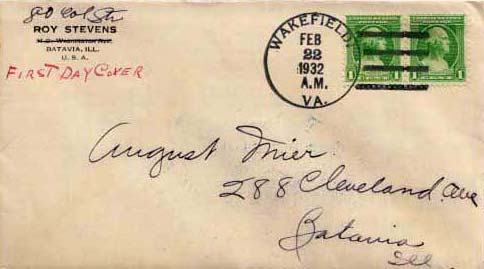 80 Col Str
ROY STEVENS
BATAVIA, ILL.
U. S. A.
FIRST DAY COVER
WAKEFIELD
FEB
22
1932
A.M.
VA.
1 1 1 1
August Mier
288 Cleveland Ave
Batavia
Ill